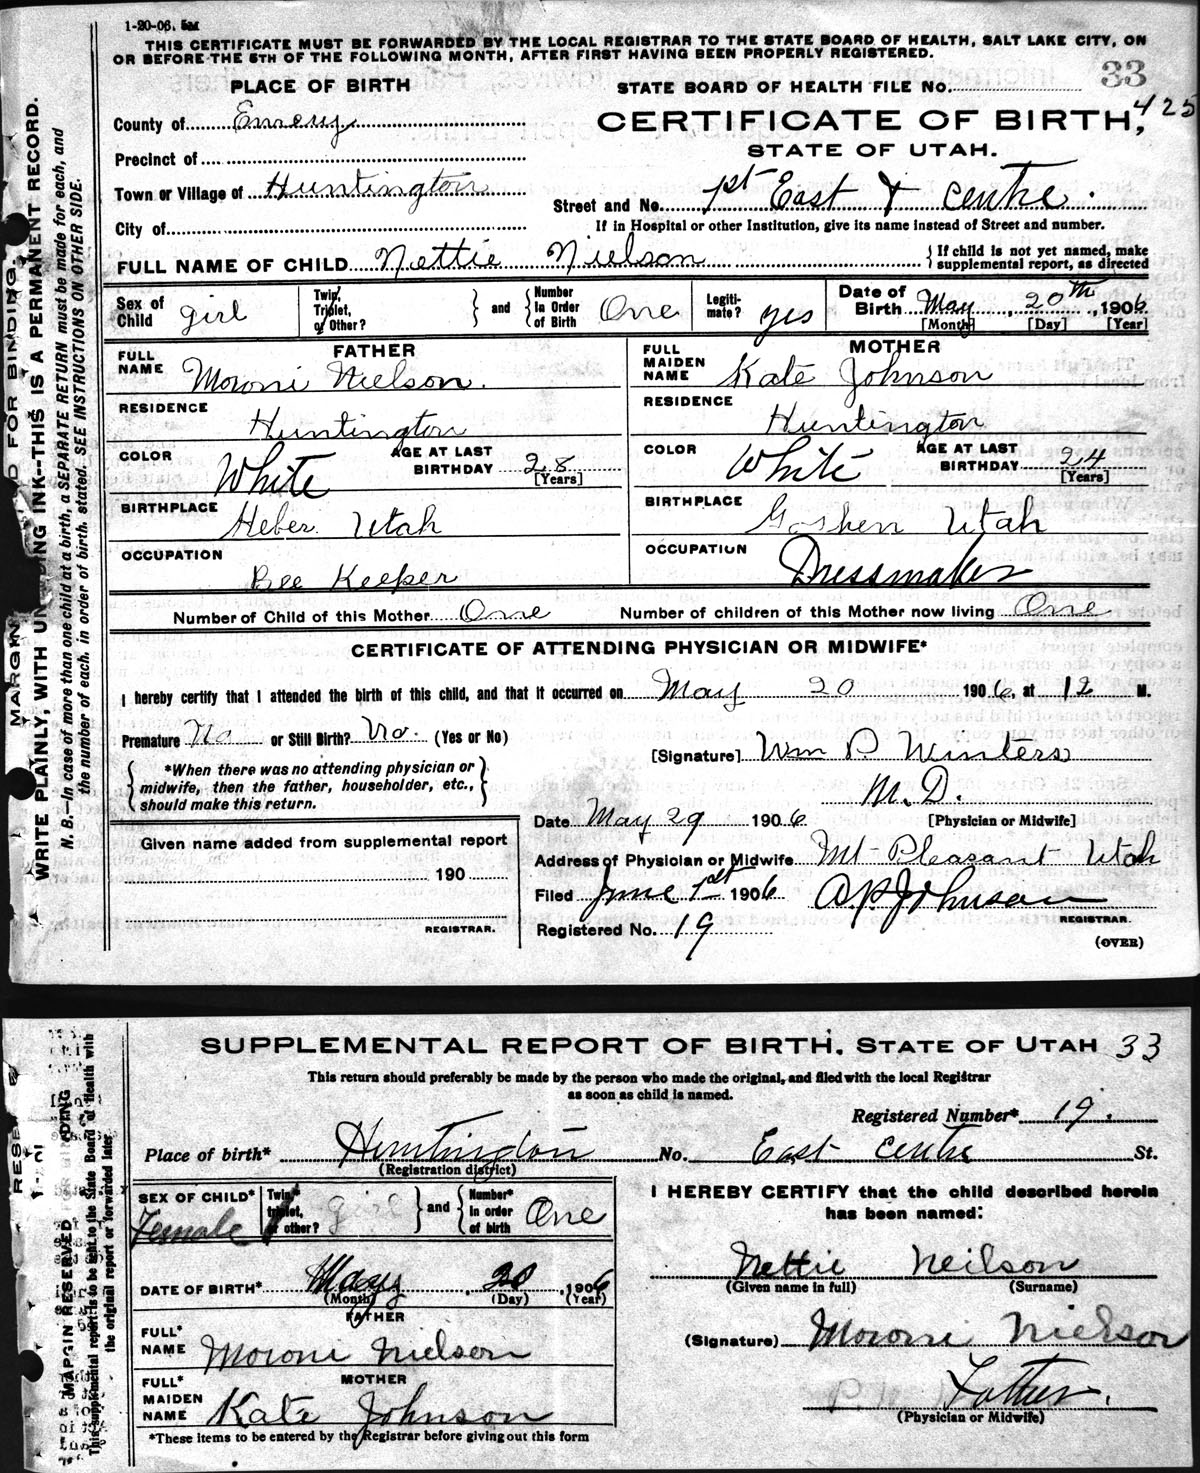 1-20-06.
THIS CERTIFICATE MUST BE FORWARDED BY THE LOCAL REGISTRAR TO THE STATE BOARD OF HEALTH, SALT LAKE CITY, ON
OR BEFORE THE 5TH OF THE FOLLOWING MONTH, AFTER FIRST HAVING BEEN PROPERLY REGISTERED.
33
PLACE OF BIRTH
STATE BOARD OF HEALTH FILE NO.
425
County of Emery
CERTIFICATE OF BIRTH,
Precinct of
STATE OF UTAH.
Town or Village of Huntington
Street and No. 1st East & Centre
City of
If in Hospital or other Institution, give its name instead of Street and number.
FULL NAME OF CHILD Nettie Nielson
{If child is not yet named, make
supplemental report, as directed
Sex of Child girl
Twin, Triplet, or Other?
} and {
Number In Order of Birth One
Legiti-mate? yes
Date of Birth May 20th, 1906
[Month] [Day] [Year]
FATHER
FULL NAME Moroni Nielson.
RESIDENCE
Huntington
COLOR White
AGE AT LAST BIRTHDAY 28
[Years]
BIRTHPLACE
Heber Utah
OCCUPATION
Bee Keeper
MOTHER
FULL MAIDEN NAME Kate Johnson
RESIDENCE
Huntington
COLOR White
AGE AT LAST BIRTHDAY 24
[Years]
BIRTHPLACE
Goshen Utah
OCCUPATION
Dressmaker
Number of Child of this Mother One Number of children of this Mother now living One
CERTIFICATE OF ATTENDING PHYSICIAN OR MIDWIFE*
I hereby certify that I attended the birth of this child, and that it occurred on May 20 1906, at 12 M.
Premature No or Still Birth? No. (Yes or No)
[Signature] Wm P. Winters
M.D.
[Physician or Midwife]
{*When there was no attending physician or
midwife, then the father, householder, etc.,
should make this return.}
Date May 29 1906
Given name added from supplemental report
190
REGISTRAR.
Address of Physician or Midwife Mt Pleasant Utah
Filed June 1st 1906 O P Johnson
REGISTRAR.
Registered No. 19
(OVER)
MARGIN FOR BINDING.
WRITE PLAINLY, WITH UNFADING INK--THIS IS A PERMANENT RECORD.
N. B.--In case of more than one child at a birth, a SEPARATE RETURN must be made for each, and
the number of each, in order of birth, stated. SEE INSTRUCTIONS ON OTHER SIDE.
SUPPLEMENTAL REPORT OF BIRTH. STATE OF UTAH 33
This return should preferably be made by the person who made the original, and filed with the local Registrar
as soon as child is named.
Registered Number* 19.
Place of birth* Huntington No. East Centre St.
(Registration district)
SEX OF CHILD*
Female
Twin, triplet, or other? girl
} and {
Number* in order of birth One
DATE OF BIRTH* May 20, 1906
(Month) (Day) (Year)
FATHER
FULL* NAME Moroni Nielson
MOTHER
FULL* MAIDEN NAME Kate Johnson
*These items to be entered by the Registrar before giving out this form
I HEREBY CERTIFY that the child described herein
has been named:
Nettie Neilson
(Given name in full) (Surname)
(Signature) Moroni Nielson
Father.
(Physician or Midwife)
MARGIN RESERVED
This supplemental report is to be sent to the State Board of Health with
the original report or forwarded later